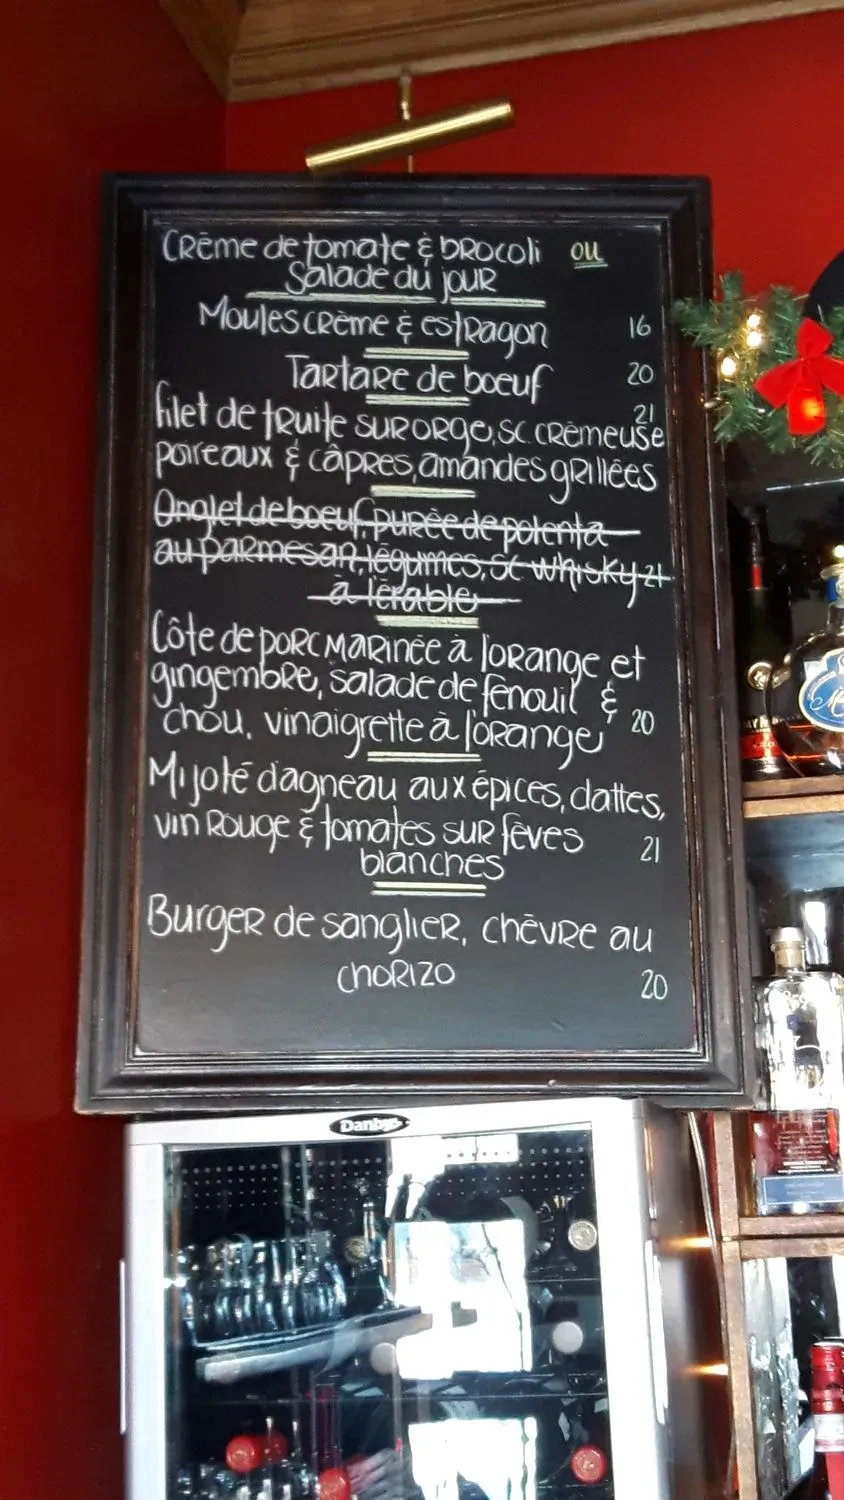 Crème de tomate & brocoli ou
Salade du jour
Moules crème & estragon 16
Tartare de boeuf 20
21
Filet de truite sur orge, sc crèmeuse
poireaux & câpres, amandes grillées
Onglet de boeuf, purée de polenta
au parmesan, légumes, sc whisky 21
à l'érable
Côte de porc marinée à l'orange et
gingembre, salade de fenouil &
chou, vinaigrette à l'orange 20
Mijoté d'agneau aux épices, dattes,
vin rouge & tomates sur fèves 21
blanches
Burger de sanglier, chèvre au
chorizo 20
Danby